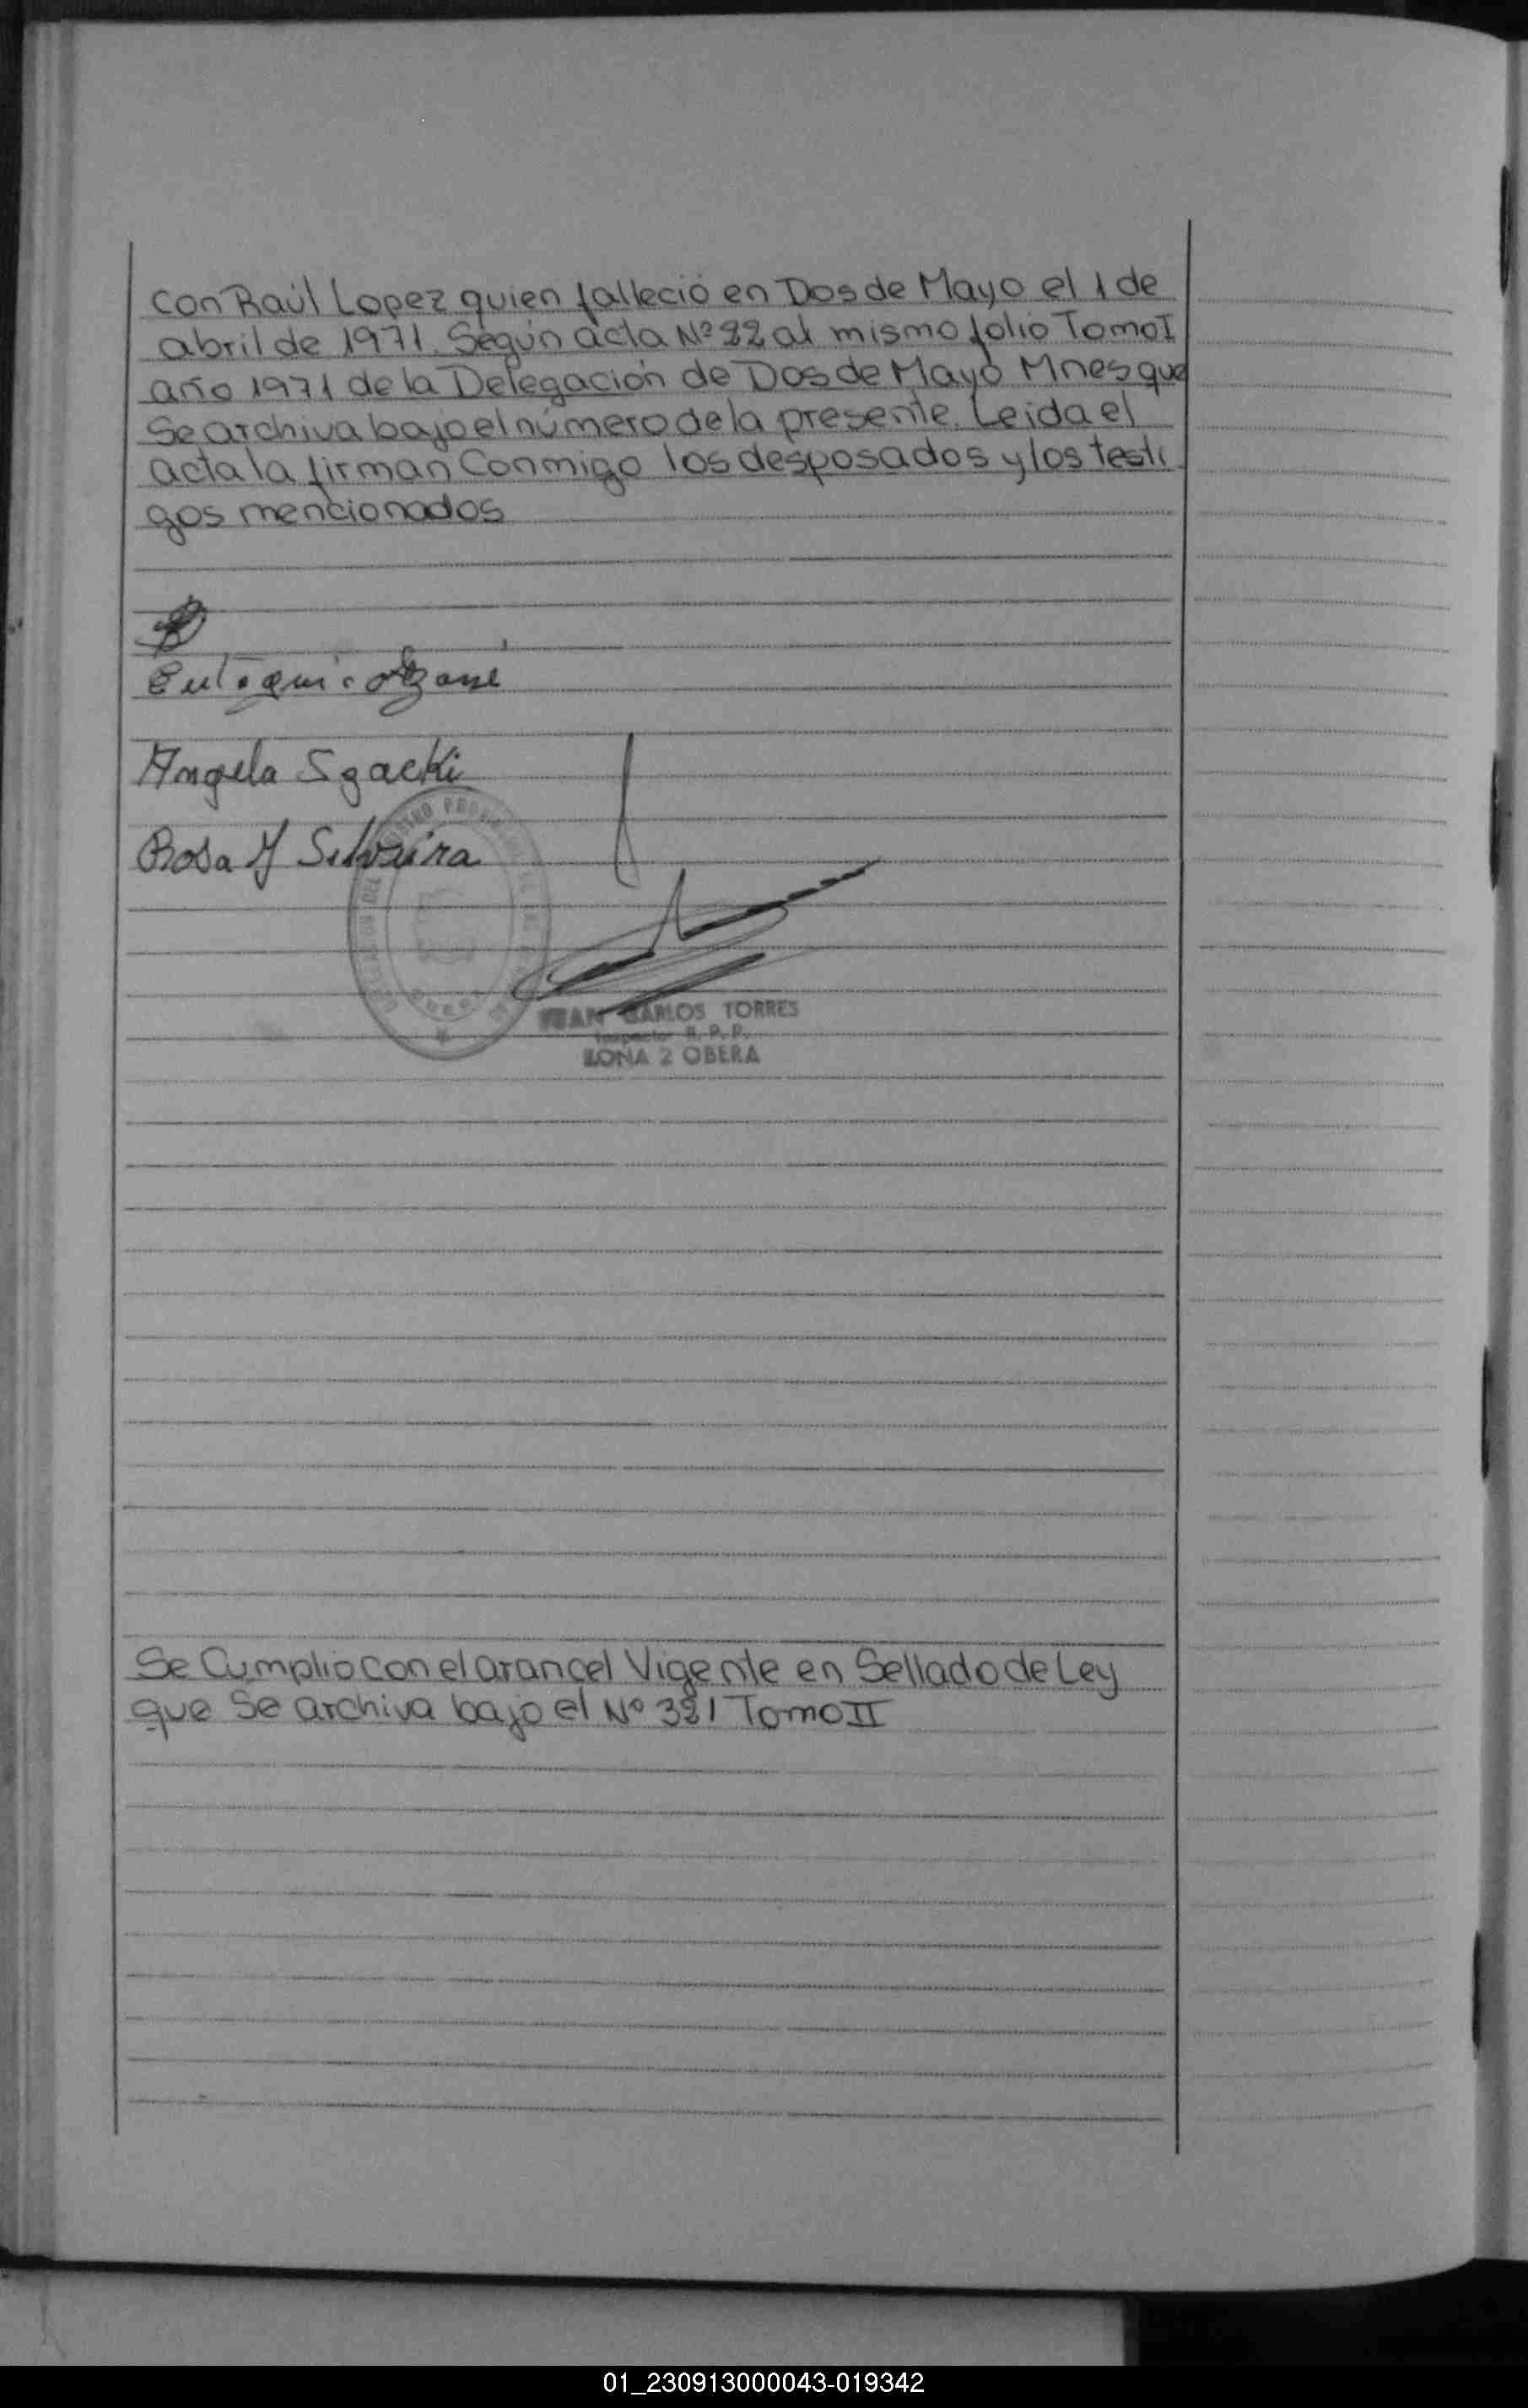 con Raúl Lopez quien falleció en Dos de Mayo el 1 de
abril de 1971. Según acta Nº 22 al mismo folio Tomo I
año 1971 de la Delegación de Dos de Mayo Mnes que
Se archiva bajo el número de la presente. Leida el
acta la firman Conmigo los desposados y los testi
gos mencionados
Angela Sgacki
Rosa M Silveira
JUAN CARLOS TORRES
Inspector R.P.P.
ZONA 2 OBERA
Se Cumplio con el arancel Vigente en Sellado de Ley
que Se archiva bajo el Nº 321 Tomo II
01_230913000043-019342